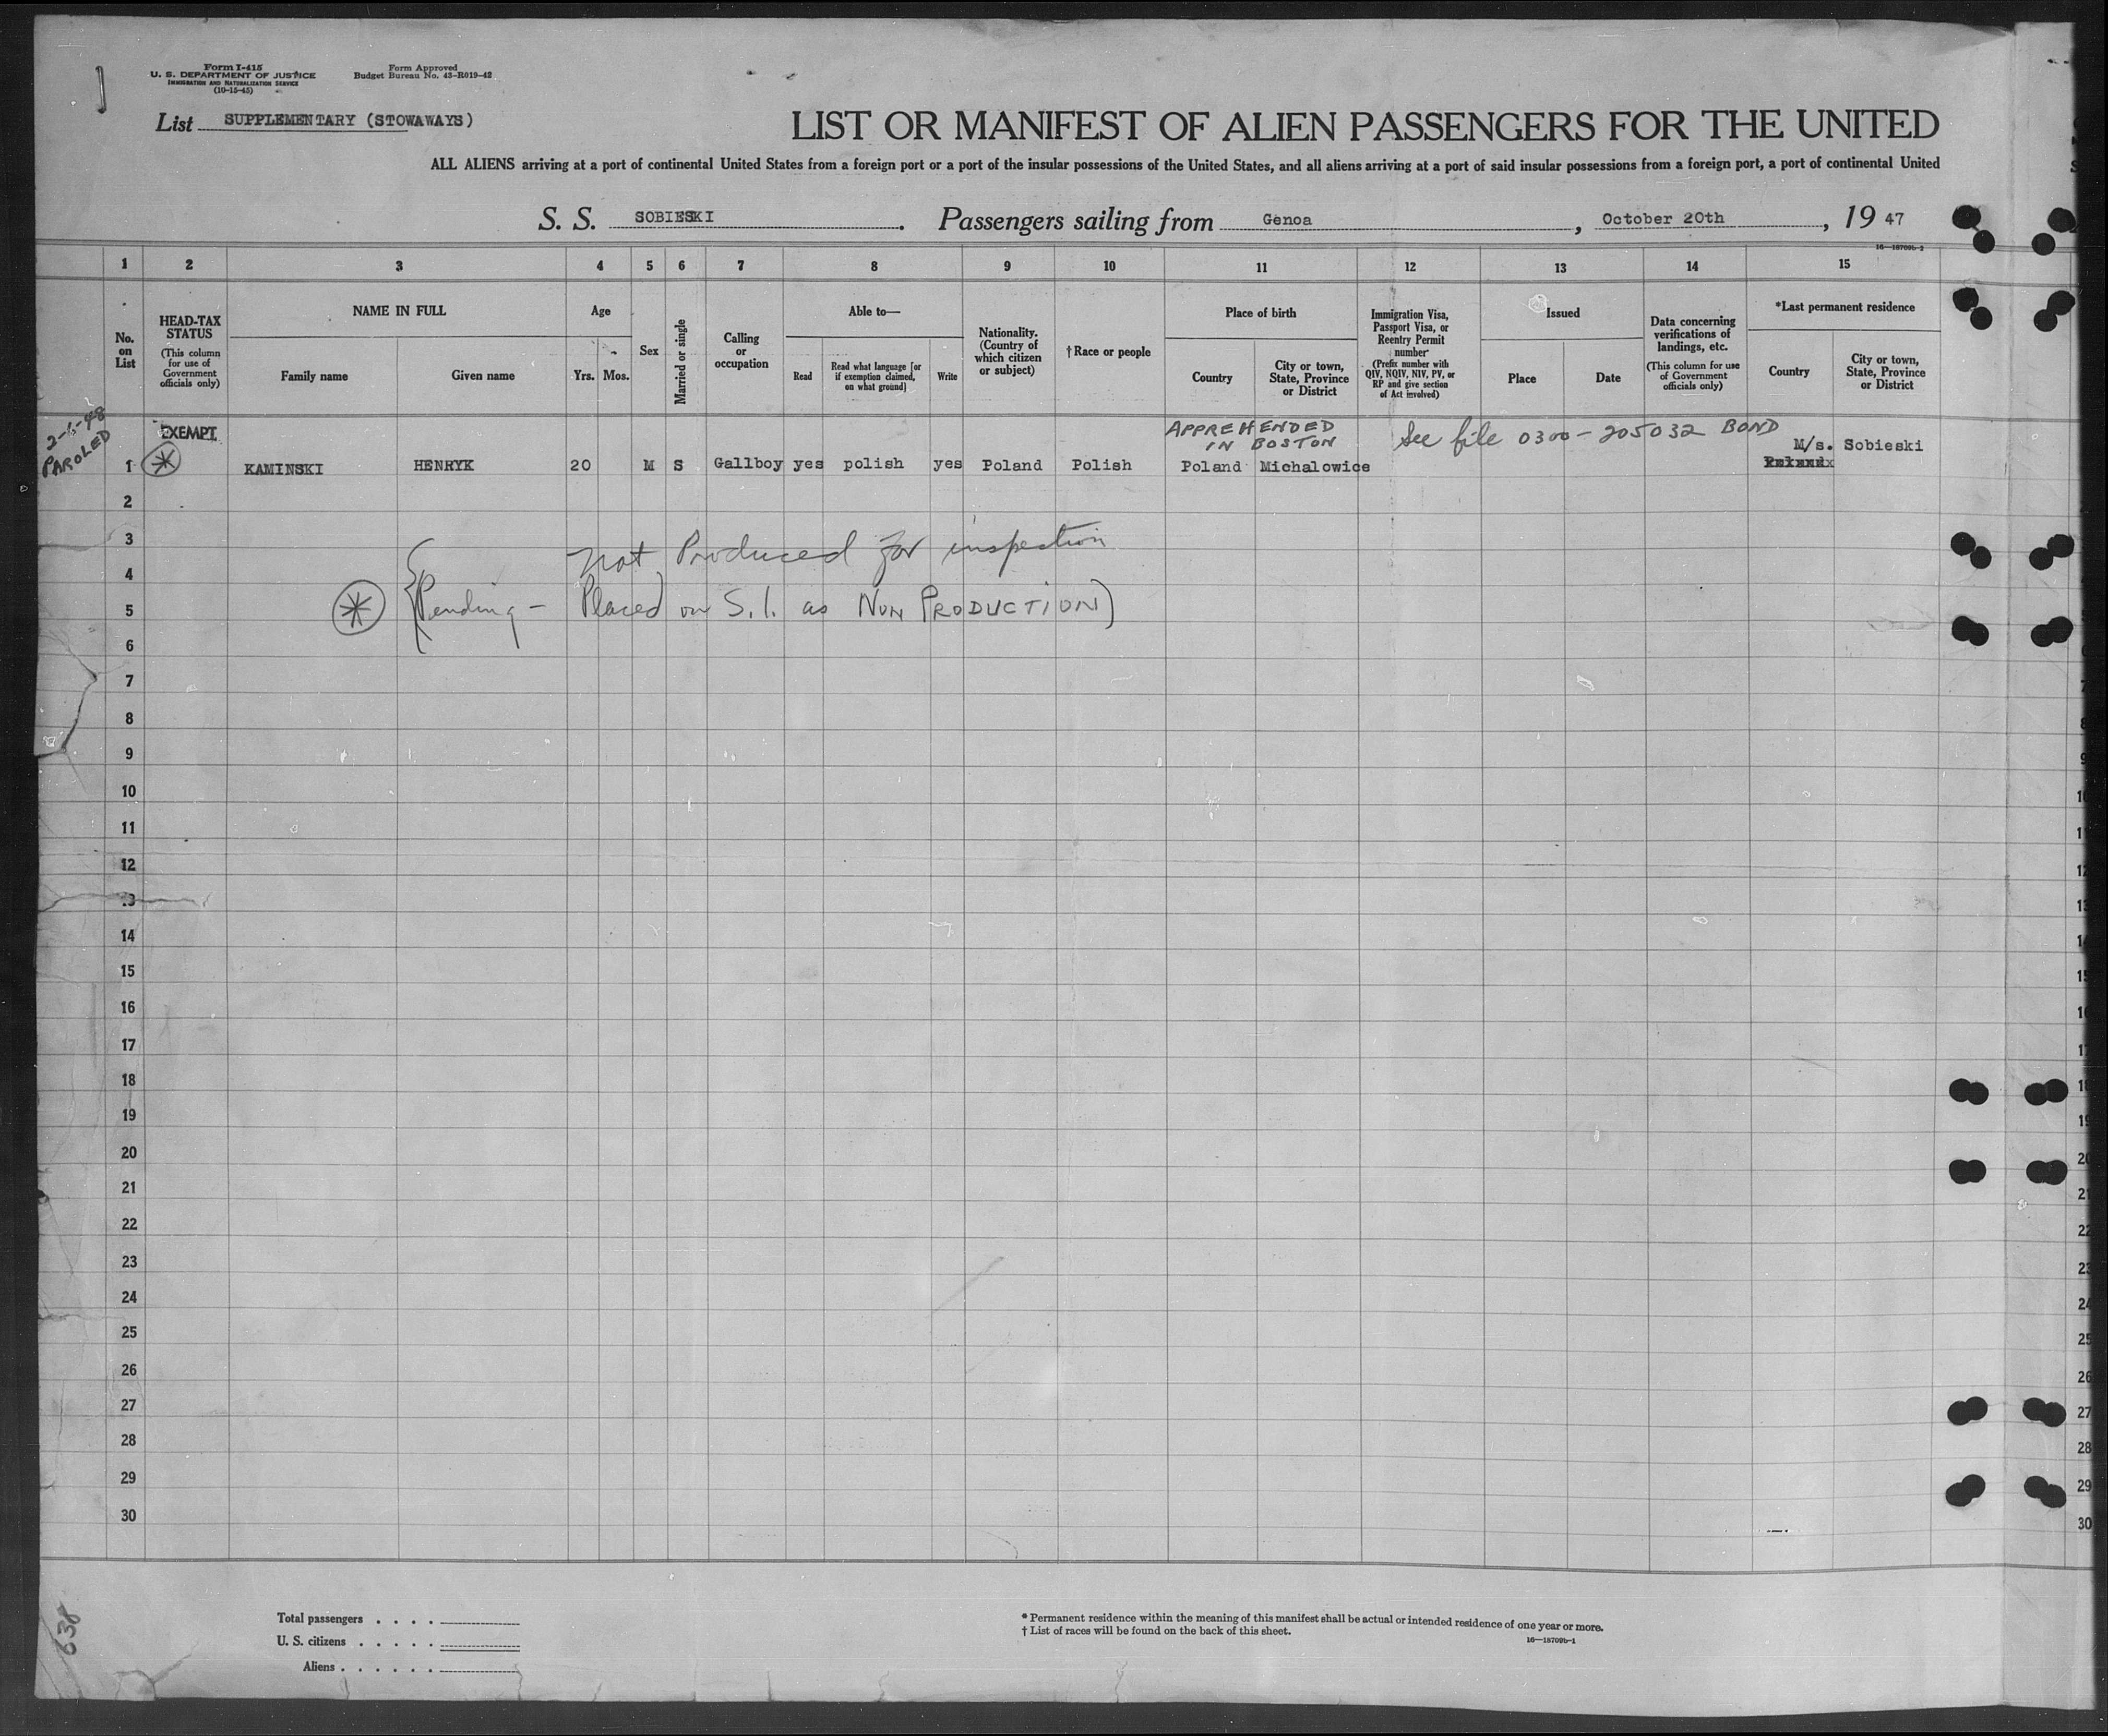 Form I-415
U. S. DEPARTMENT OF JUSTICE
IMMIGRATION AND NATURALIZATION SERVICE
(10-15-45)
Form Approved
Budget Bureau No. 43-R019-42
List SUPPLEMENTARY (STOWAWAYS)
LIST OR MANIFEST OF ALIEN PASSENGERS FOR THE UNITED
ALL ALIENS arriving at a port of continental United States from a foreign port or a port of the insular possessions of the United States, and all aliens arriving at a port of said insular possessions from a foreign port, a port of continental United
S. S. SOBIESKI. Passengers sailing from Genoa, October 20th, 19 47
16—18709b-2
1 2 3 4 5 6 7 8 9 10 11 12 13 14 15
No. on List
HEAD-TAX STATUS
(This column for use of Government officials only)
NAME IN FULL
Family name
Given name
Age
Yrs. Mos.
Sex
Married or single
Calling or occupation
Able to—
Read
Read what language [or if exemption claimed, on what ground]
Write
Nationality. (Country of which citizen or subject)
†Race or people
Place of birth
Country
City or town, State, Province or District
Immigration Visa, Passport Visa, or Reentry Permit number
(Prefix number with QIV, NQIV, NIV, PV, or RP and give section of Act involved)
Issued
Place
Date
Data concerning verifications of landings, etc.
(This column for use of Government officials only)
*Last permanent residence
Country
City or town, State, Province or District
2-6-48
PAROLED
EXEMPT
APPREHENDED
IN BOSTON
See file 0300-205032 BOND
1 KAMINSKI HENRYK 20 M S Gallboy yes polish yes Poland Polish Poland Michalowice M/s. Sobieski
2
3
not Produced for inspection
4
5
Pending - Placed on S.I. as NON PRODUCTION)
6
7
8
9
10
11
12
13
14
15
16
17
18
19
20
21
22
23
24
25
26
27
28
29
30
638
Total passengers . . . .
U. S. citizens . . . . .
Aliens . . . . . .
* Permanent residence within the meaning of this manifest shall be actual or intended residence of one year or more.
† List of races will be found on the back of this sheet.
16—18709b-1